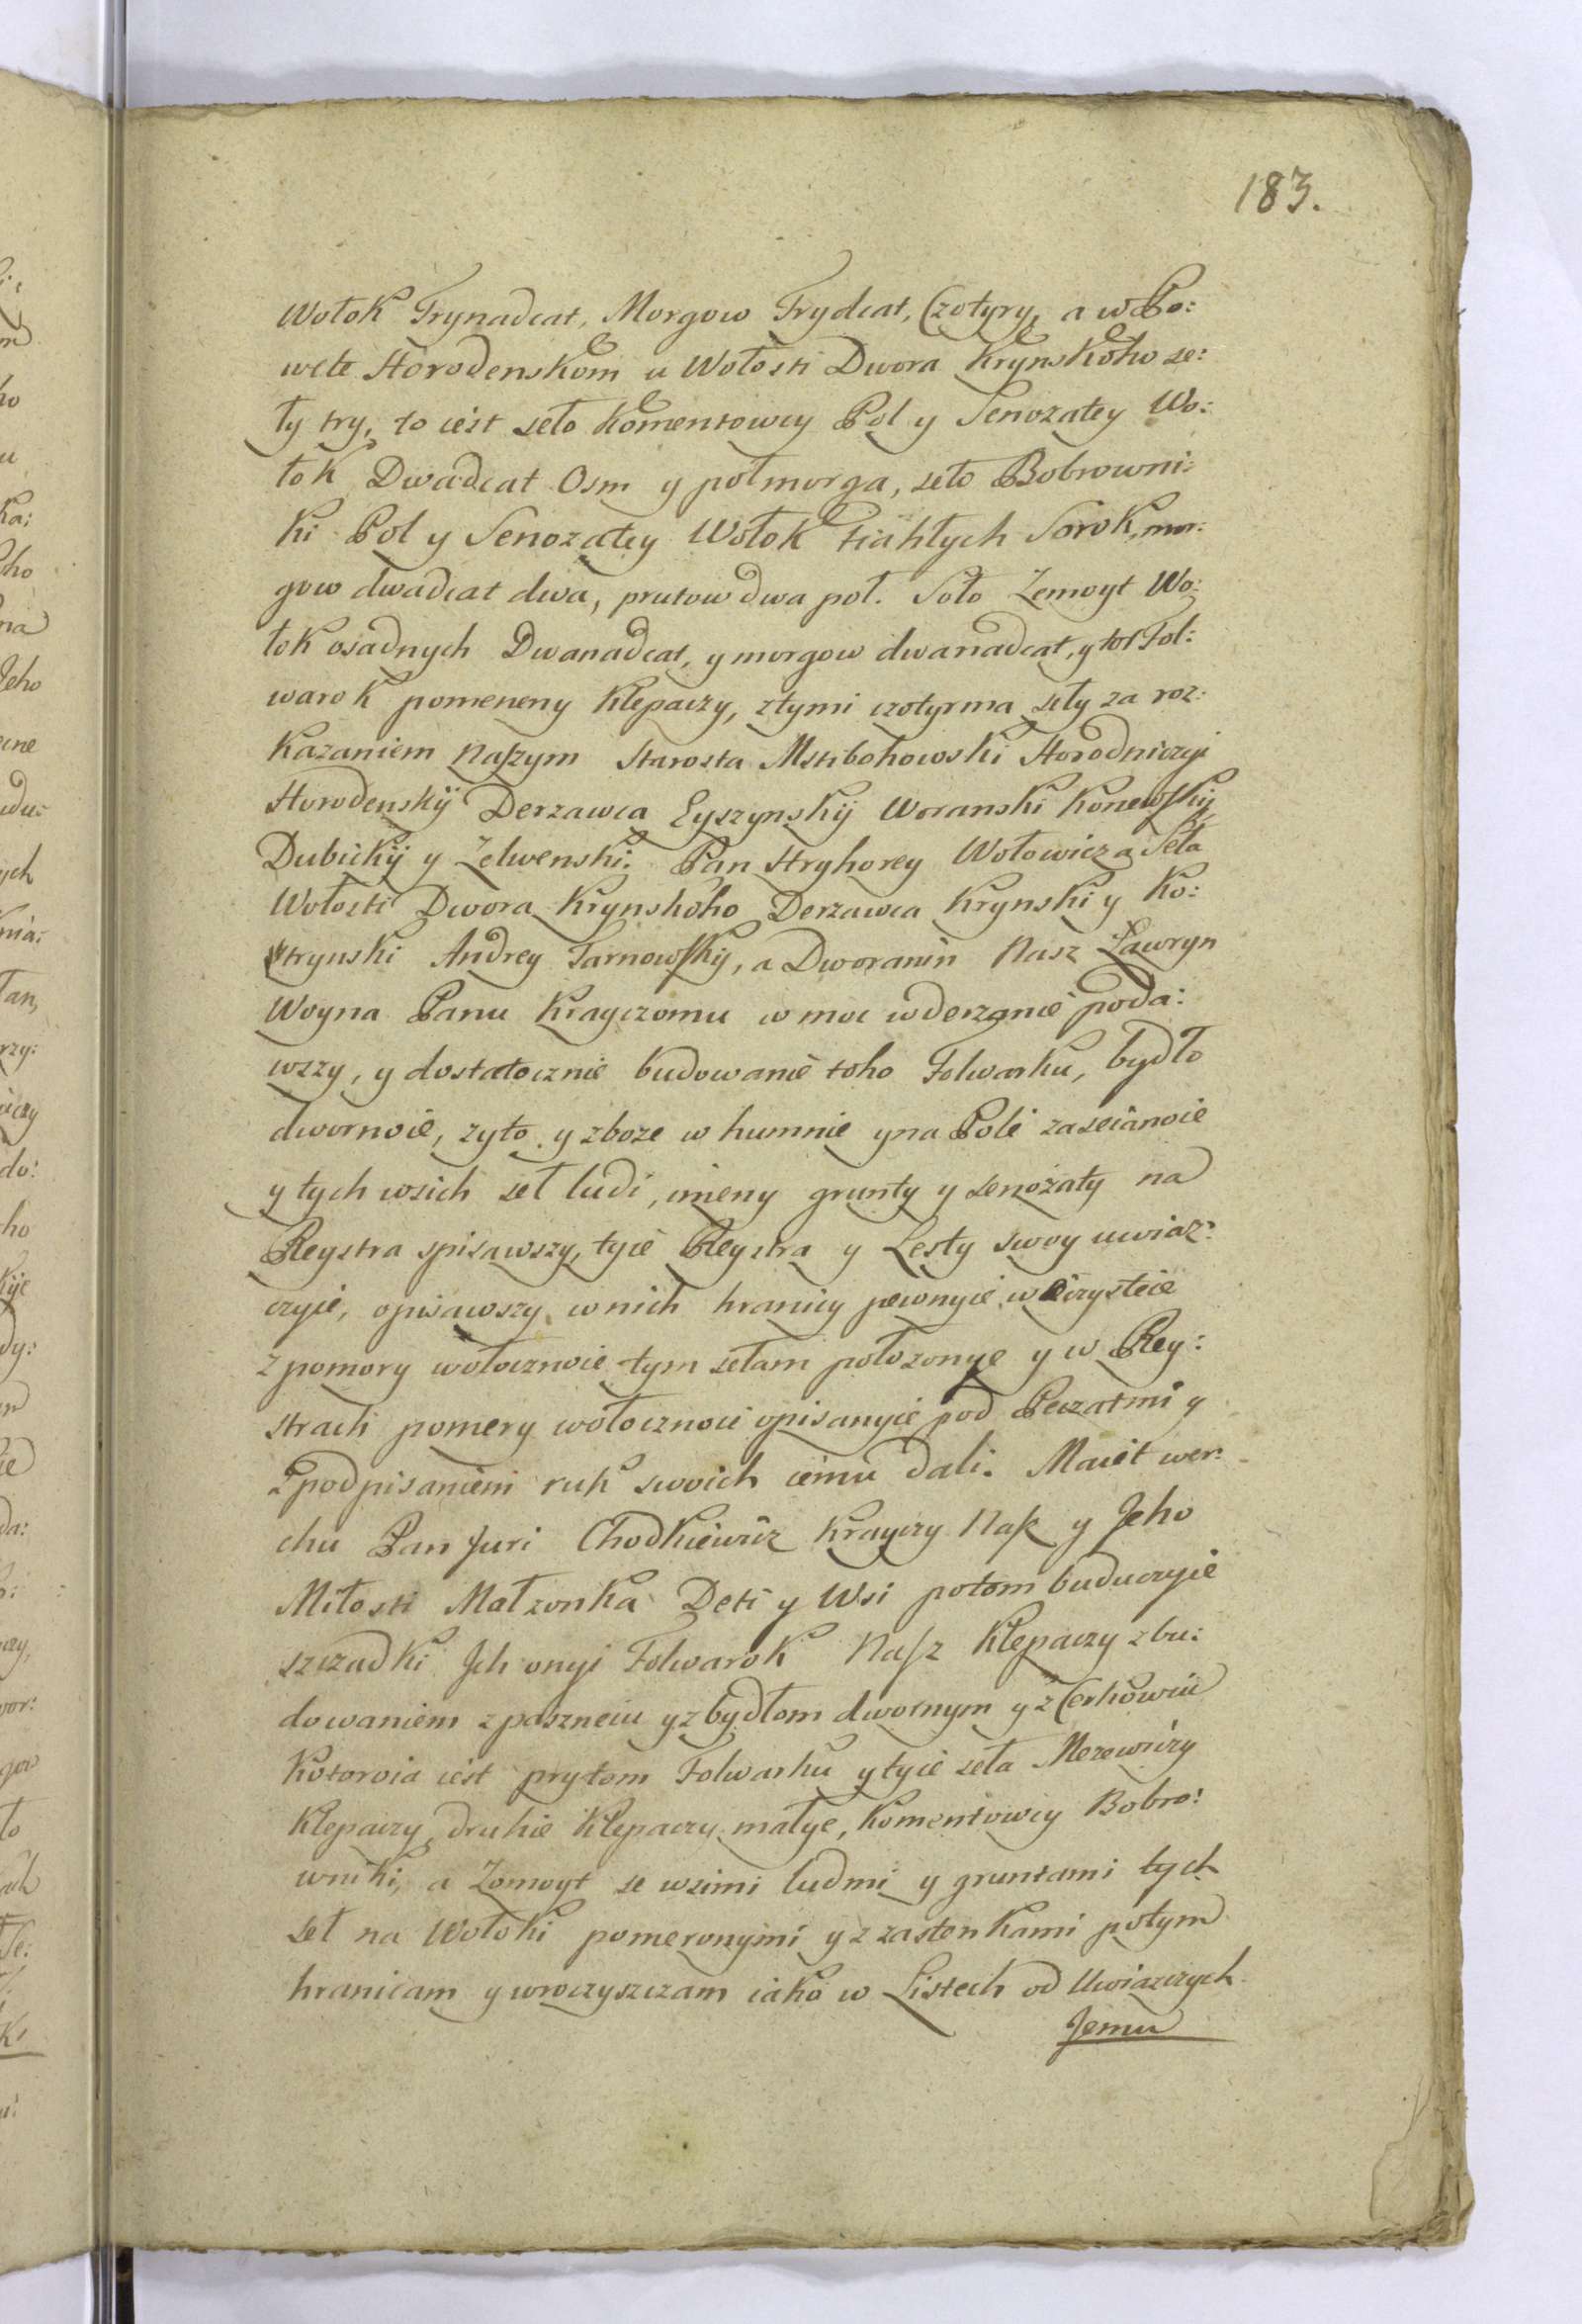 183.
Wołok Trynadcat, Morgow Trydcat, Czotyry, a w Po:
wete Horodenskom u Wołosti Dwora Krynskoho se:
ły try, to iest seło Komentowcy Pol y Senozatey Wo:
łok Dwadcat Osm y połmorga, seło Bobrowni:
ki Pol y Senozatey Wołok tiahłych Sorok, mor:
gow dwadcat dwa, prutow dwa poł. Soło Zemoyt Wo:
łok osadnych Dwanadcat, y morgow dwanadcat, y tot Fol:
warok pomeneny Klepaczy, z tymi czotyrma seły za roz:
kazaniem naszym Starosta Mstibohowski Horodniczyi
Horodenskij Derzawca Lyszynskij Woranski Konewskij
Dubickij y Zelwenski: Pan Hryhorey Wołowicz a Seła
Wołosti Dwora Krynskoho Derzawca Krynski y Ko:
strynski Andrey Tarnowskij, a Dworanin Nasz Ławryn
Woyna Panu Krayczomu w moc w derzanie poda:
wszy, y dostatocznie budowanie toho Folwarku, bydło
dwornoie, zyto y zboze w humnie y na Poli zaseianoie
y tych wsich seł ludi, imeny grunty y senozaty na
Reystra spisawszy, tyie Reystra y Lesty swoy uwiaz:
czyie, opisawszy w nich hranicy pewnyie weczysteie
z pomory wołocznoie tym sełam położonye y w Rey:
strach pomery wołocznoie opisanyie pod Peczatmi y
z podpisaniem ruk swoich iemu dali. Maiet wer:
chu Pan Juri Chodkiewicz Krayczy Nasz y Jeho
Miłosti Małzonka Deti y Wsi potom buduczyie
szczadki Jch onyi Folwarok Nasz Klepaczy z bu:
dowaniem z paszneiu y z bydłom dwornym y z Cerkowiu
Kotoroia iest pry tom Folwarku y tyie seła Merewiczy
Klepaczy, druhie Klepaczy małye, Komentowcy Bobro:
wniki, a Zomoyt se wsimi ludmi y gruntami tych
seł na Wołoki pomeronymi y z zastenkami po tym
hranicam y wroczyszczam iako w Listech od Uwiazczych
Jemu